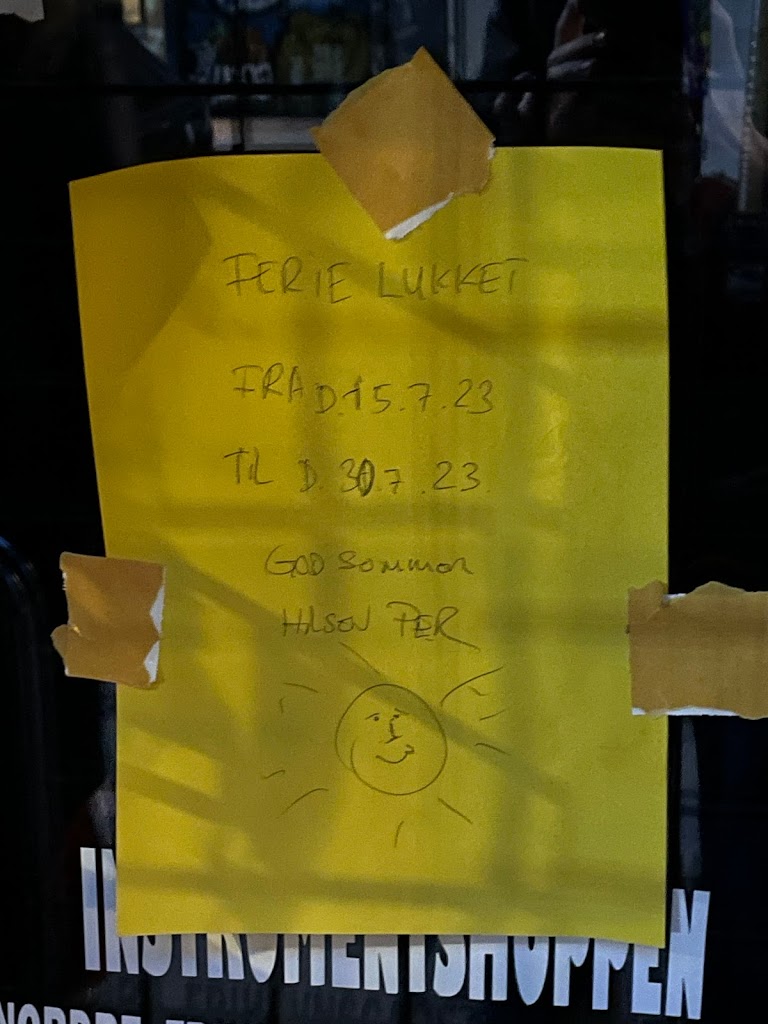 FERIE LUKKET
FRA D.15.7.23
TIL D.30.7.23.
GOD SOMMER
HILSEN PER
INSTRUMENTSHOPPEN